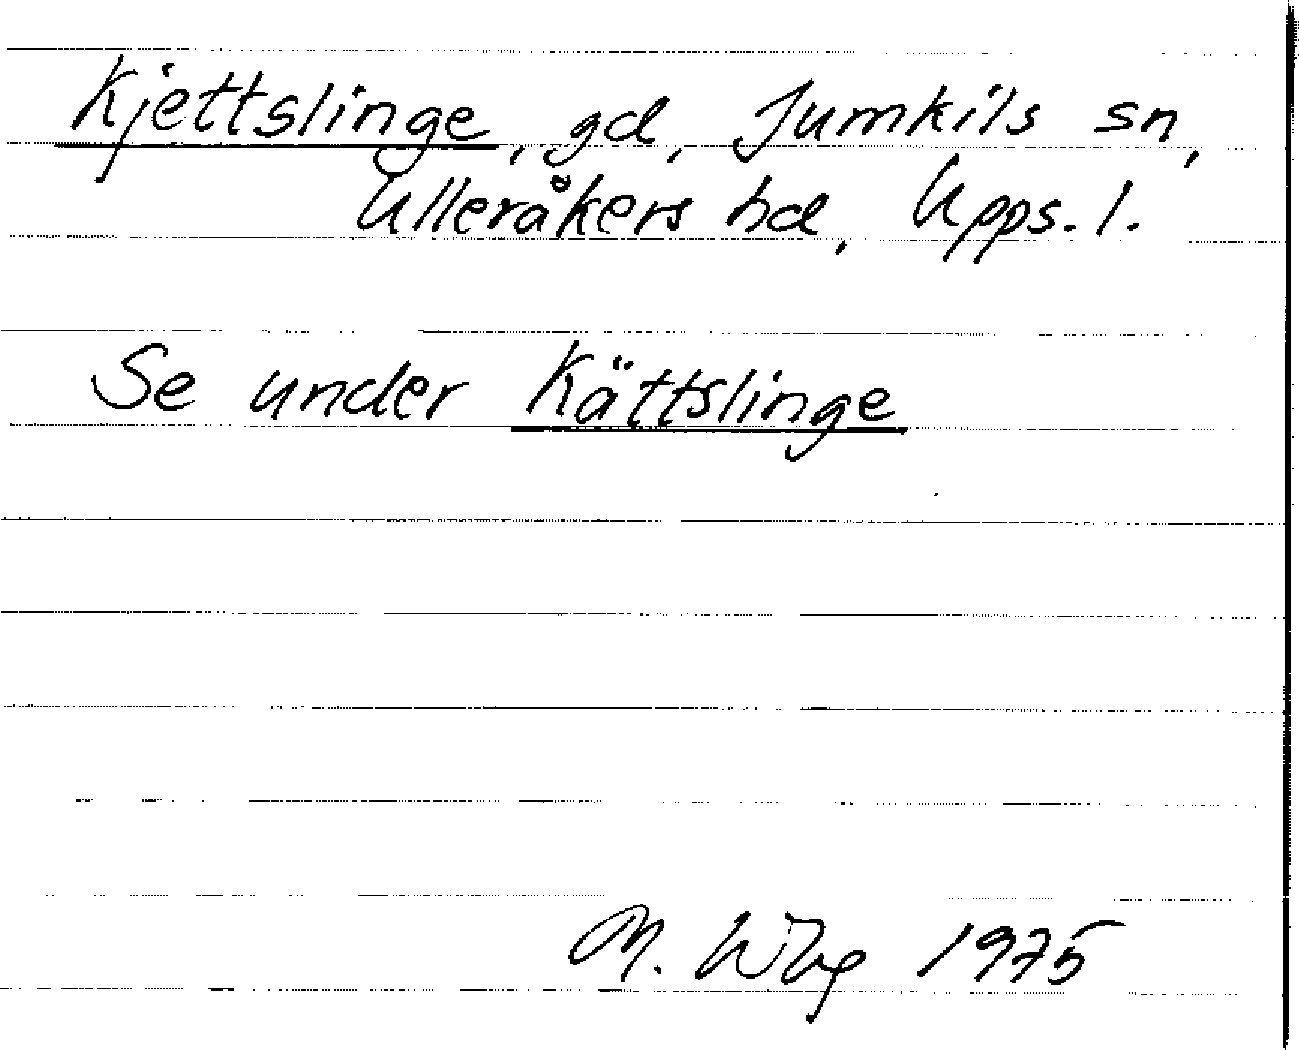 Kjettslinge, gd, Jumkils sn,
Ulleråkers hd, Upps. l.
Se under Kättslinge
M. 1975